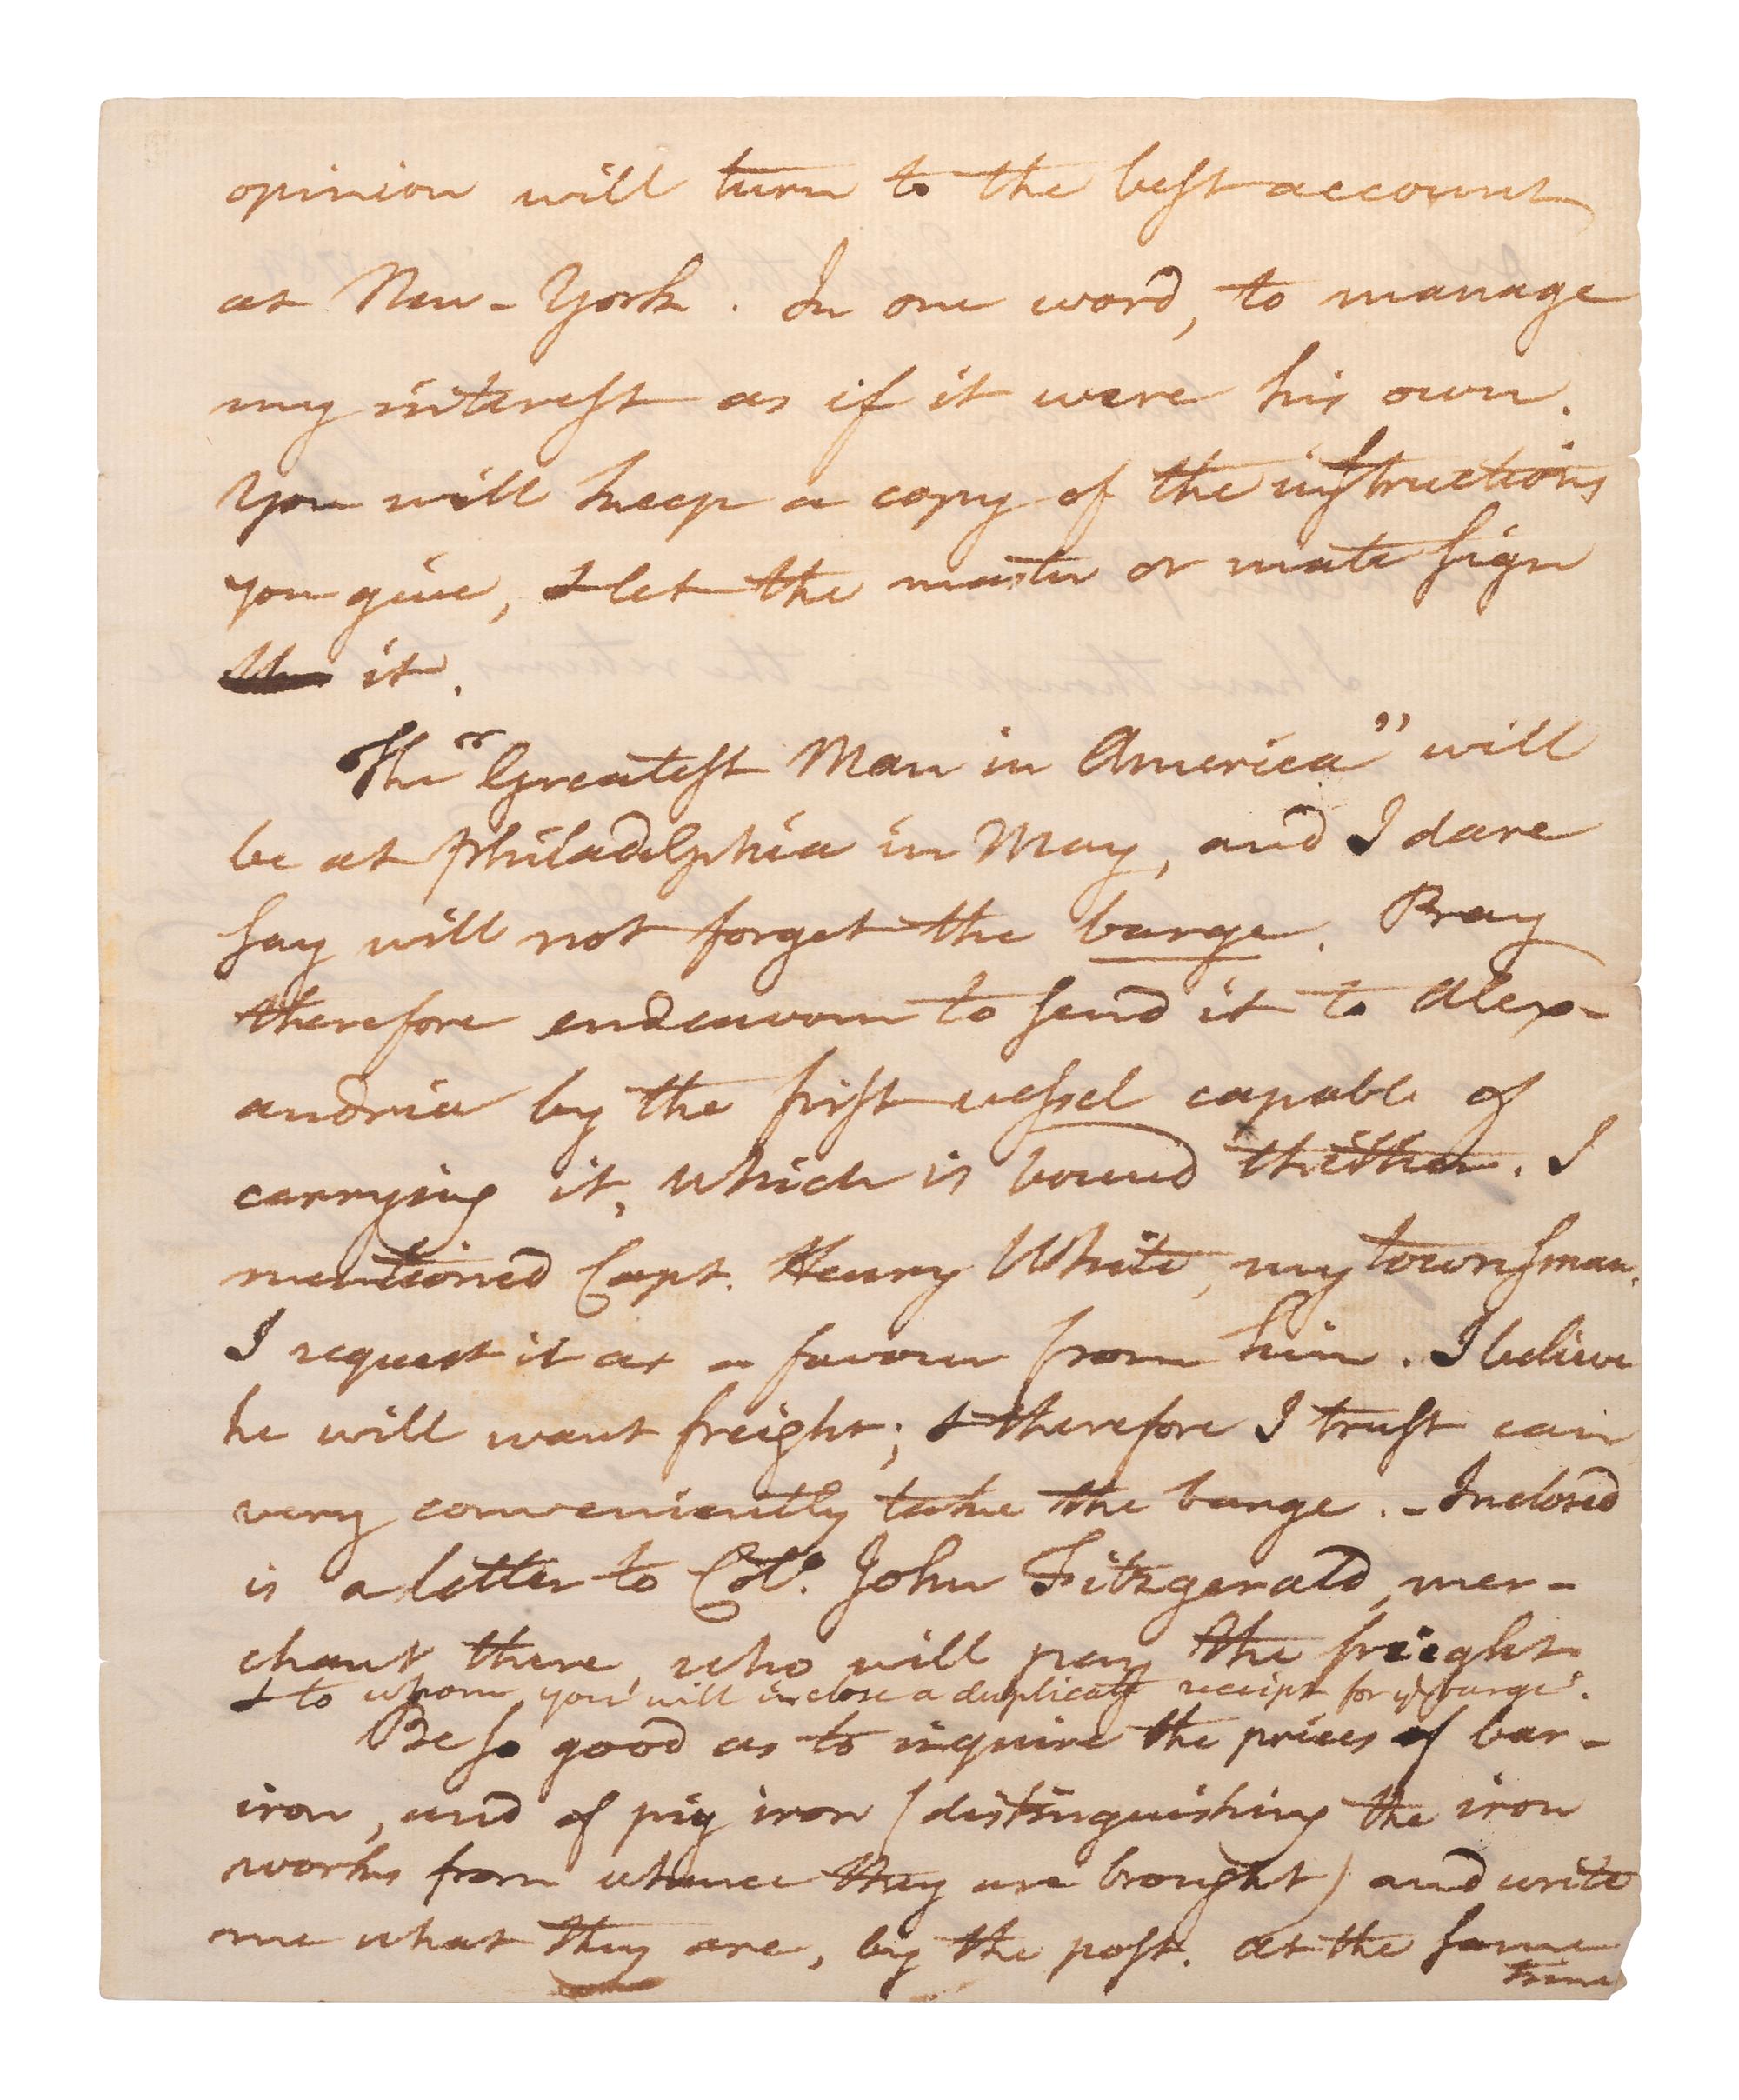 opinion will turn to the best account
at New-York. In one word, to manage
my interest as if it were his own.
You will keep a copy of the instructions
you give, & let the master or mate sign
it.
The "Greatest Man in America" will
be at Philadelphia in May, and I dare
say will not forget the barge. Pray
therefore endeavour to send it to Alex-
andria by the first vessel capable of
carrying it, which is bound thither. I
mentioned Capt. Henry White, my townsman.
I request it as a favour from him. I believe
he will want freight; & therefore I trust can
very conveniently take the barge. - Inclosed
is a letter to Col.º John Fitzgerald, mer-
chant there, who will pay the freight
& to whom you will inclose a duplicate receipt for yᵉ barge.
Be so good as to inquire the prices of bar-
iron, and of pig iron (distinguishing the iron
works from whence they are brought) and write
me what they are, by the post. at the same
time